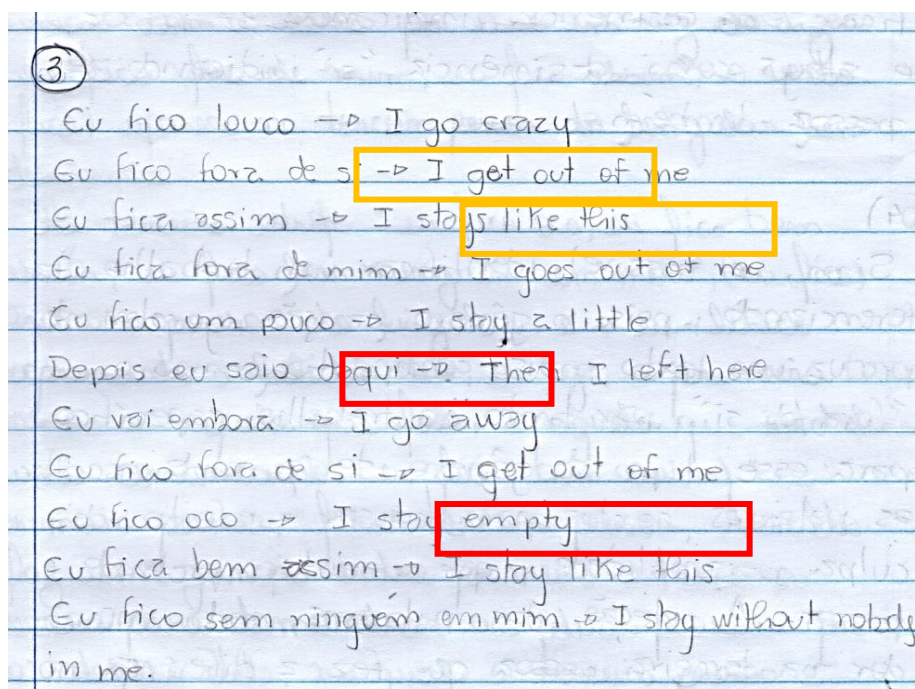 3
Eu fico louco → I go crazy
Eu fico fora de si → I get out of me
Eu fica assim → I stays like this
Eu fica fora de mim → I goes out of me
Eu fico um pouco → I stay a little
Depois eu saio daqui → Then I left here
Eu vai embora → I go away
Eu fico fora de si → I get out of me
Eu fico oco → I stay empty
Eu fica bem assim → I stay like this
Eu fico sem ninguém em mim → I stay without nobody
in me.